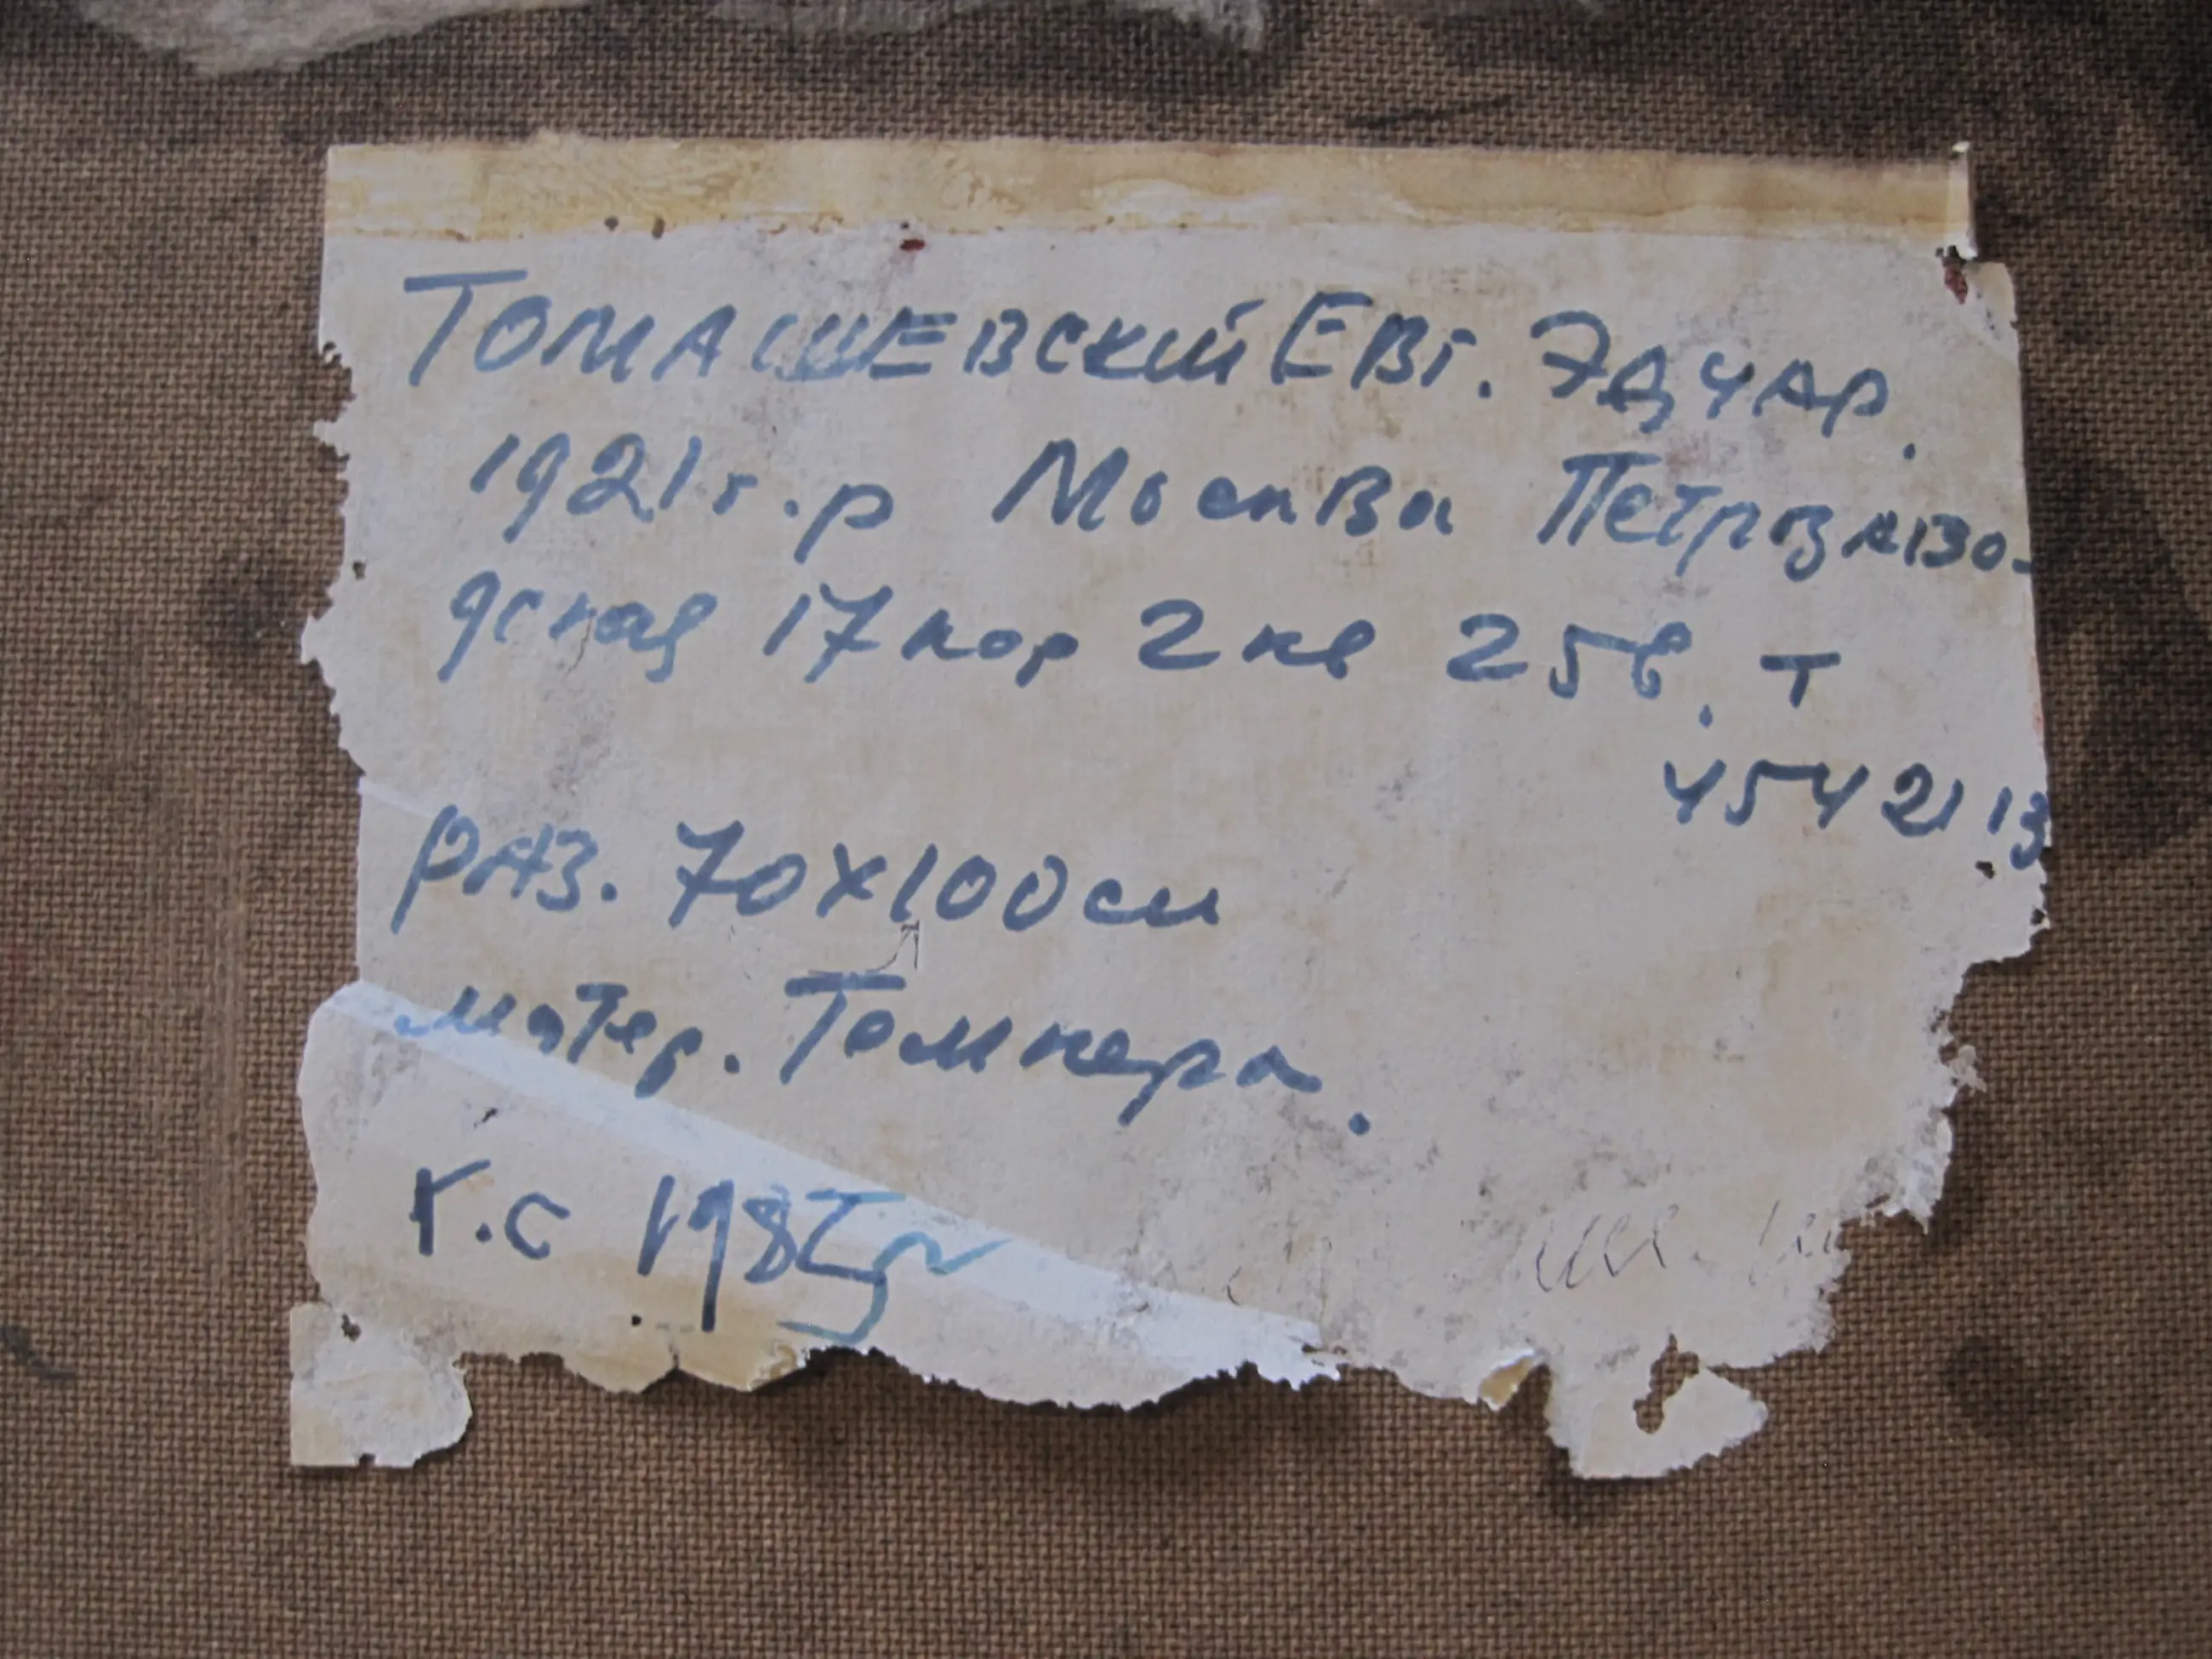 ТОМАШЕВСКИЙ ЕВг. Эдуар.
1921 г.р Москва Петрозаво-
дская 17 кор 2 кв 256. т
454 21 13
раз. 70х100см
матер. Темпера.
г.с 1985г